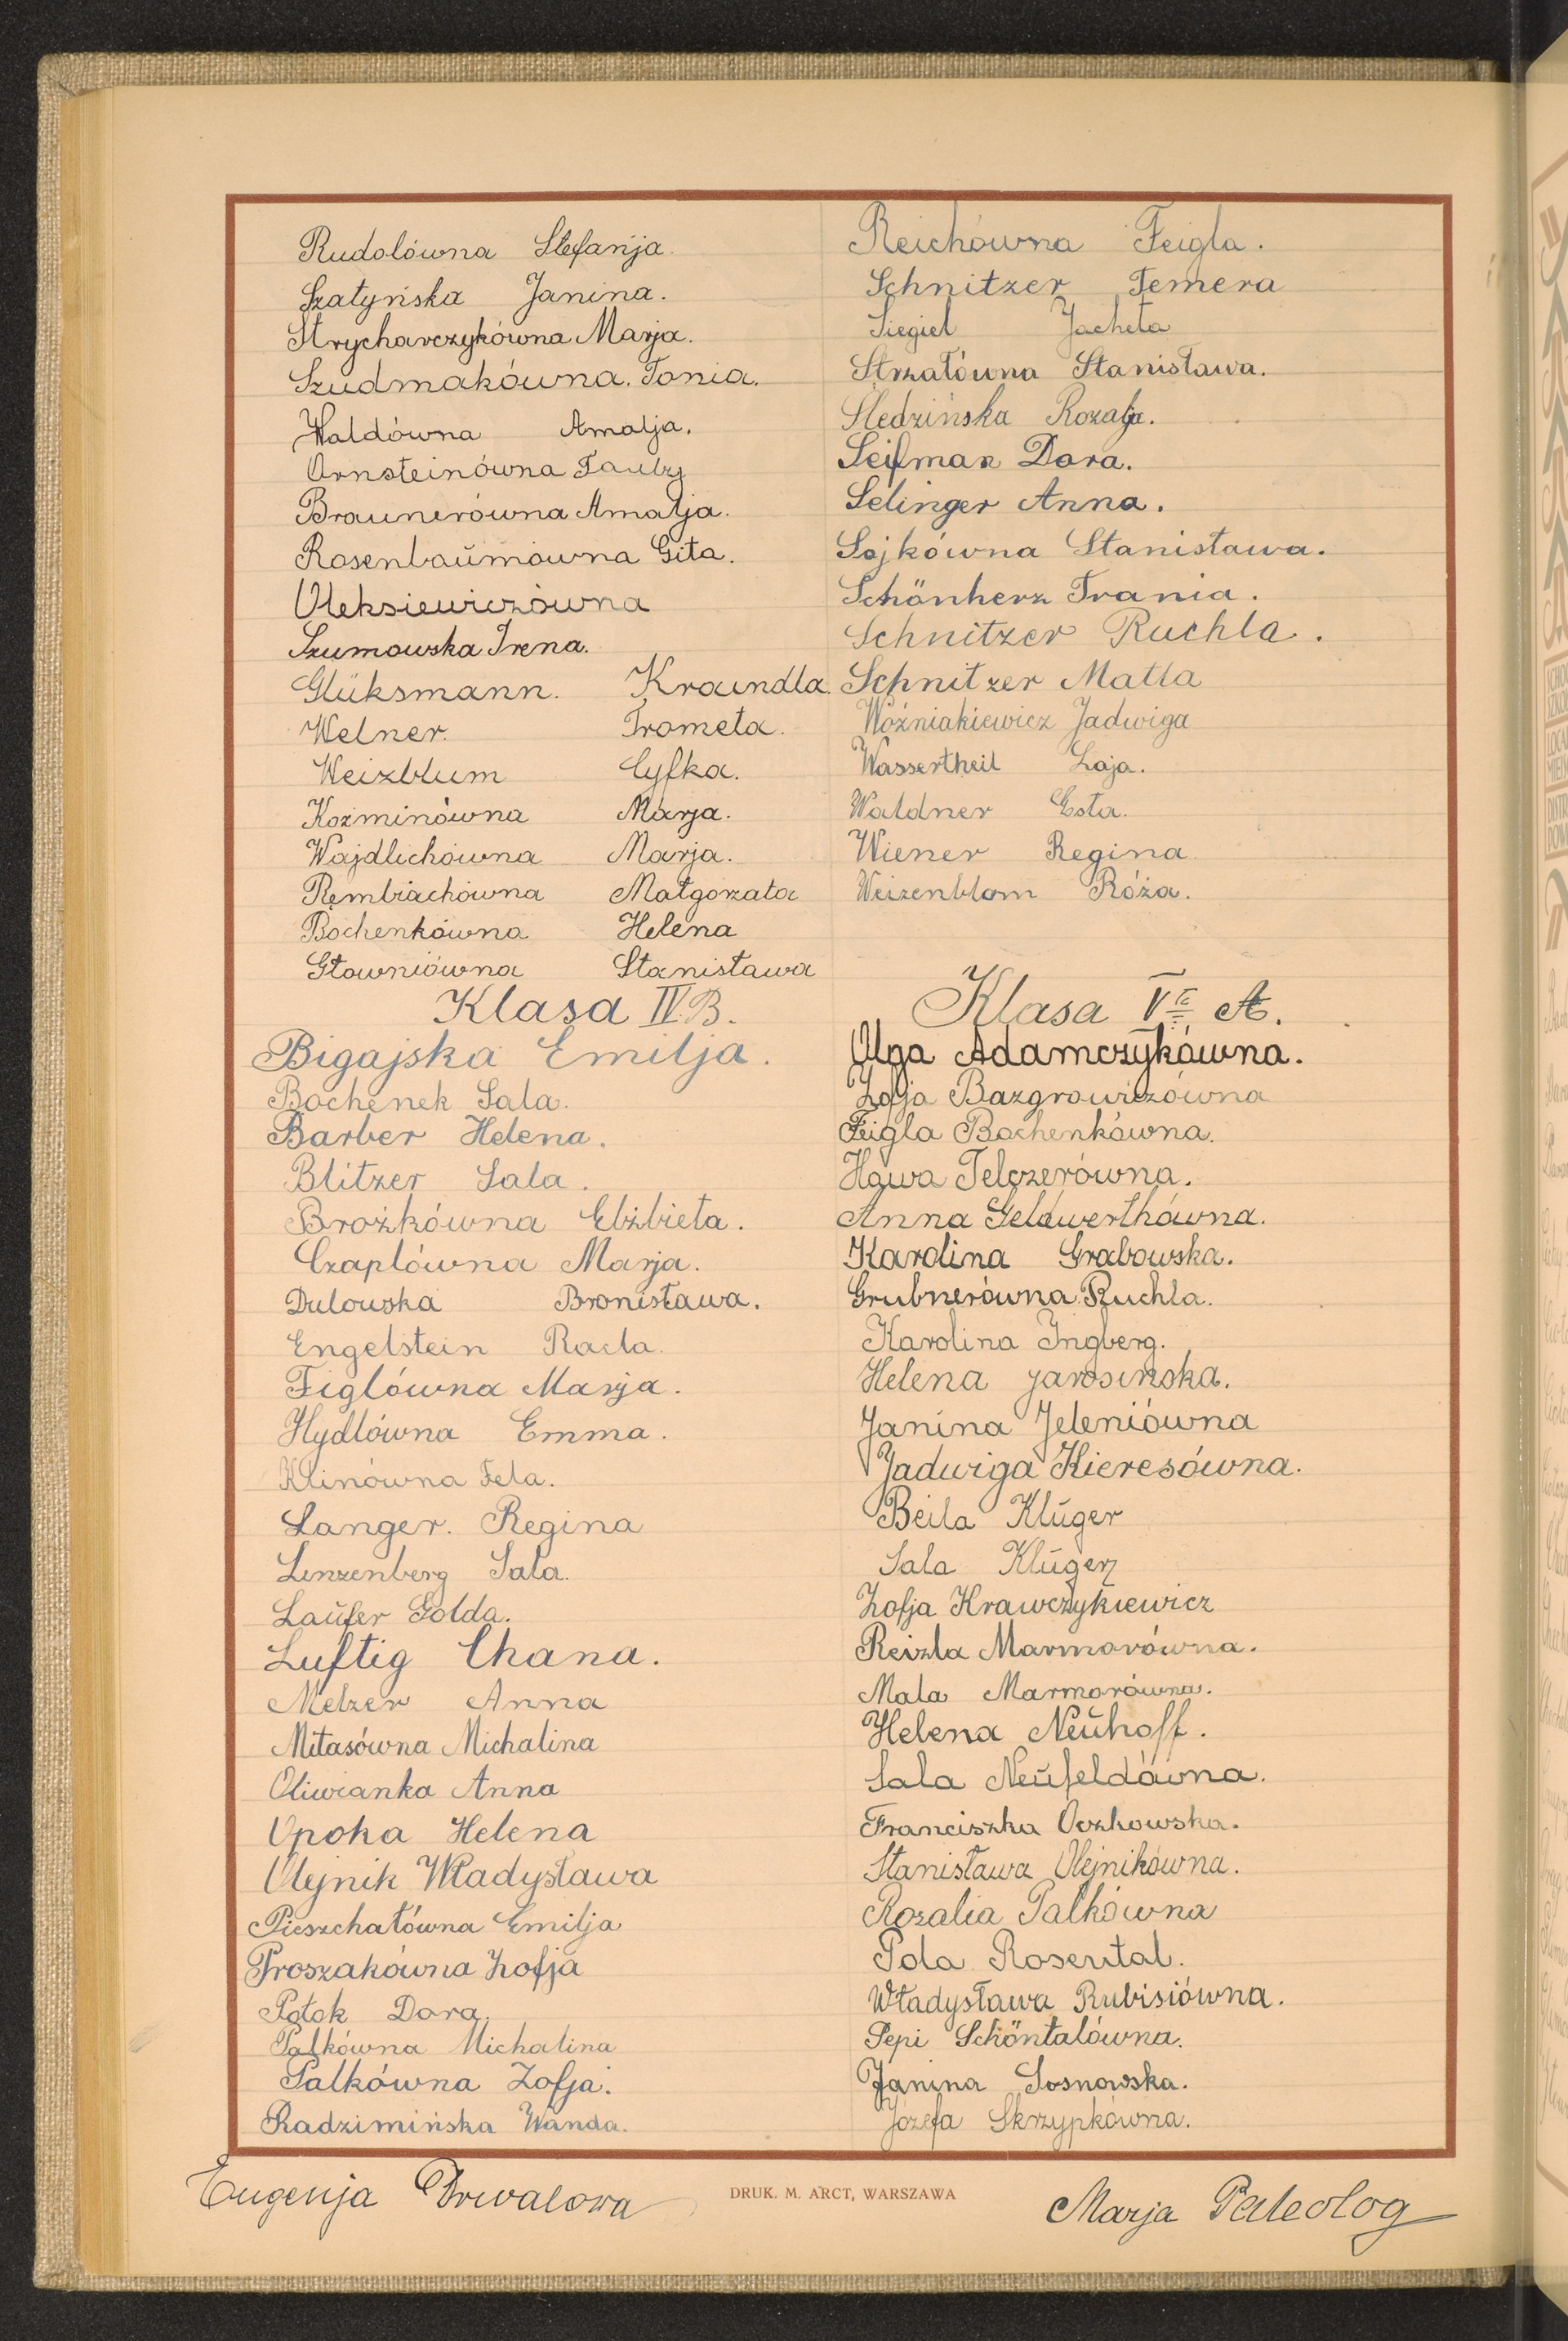 Rudolówna Stefanja.
Szatyńska Janina.
Strycharczykówna Marja.
Szudmakówna. Tonia.
Waldówna Amalja.
Ornsteinówna
Braunerówna Amalja.
Rosenbaŭmówna Gita.
Oleksiewiczówna
Szumowska Irena.
Glüksmann. Kraindla.
Welner. Frometa.
Weizblum Cyfka.
Koźminówna Marja.
Wajdlichówna Marja.
Rembiachówna Małgorzata
Bochenkówna Helena
Głowniówna Stanisława
Klasa IV B.
Bigajska Emilja.
Bochenek Sala.
Barber Helena.
Blitzer Sala.
Brożkówna Elżbieta.
Czaplówna Marja.
Dulowska Bronisława.
Engelstein Racla.
Figlówna Marja.
Hydlówna Emma.
Klinówna Fela.
Langer. Regina
Lenzenberg Sala.
Laŭfer Golda.
Luftig Chana.
Melzer Anna
Mitasówna Michalina
Oliwianka Anna
Opoka Helena
Olejnik Władysława
Pieszchałówna Emilja
Proszakówna Zofja
Potok Dora.
Palkówna Michalina
Palkówna Zofja.
Radzimińska Wanda.
Reichówna Feigla.
Schnitzer Temera
Siegiel Jacheta
Strzałówna Stanisława.
Śledzińska Rozalja.
Seifman Dora.
Selinger Anna.
Sojkówna Stanisława.
Schönherz Frania.
Schnitzer Ruchla.
Schnitzer Matla
Woźniakiewicz Jadwiga
Wassertheil Łaja.
Waldner Esta.
Wiener Regina
Weizenblom Róża.
Klasa Vta A.
Olga Adamczykówna.
Zofja Bazgrowiczówna
Feigla Bochenkówna.
Hawa Felczerówna.
Anna Geldwerthówna.
Karolina Grabowska.
Grubnerówna Ruchla.
Karolina Ingberg.
Helena Jarosińska.
Janina Jeleniówna
Jadwiga Kieresówna.
Beila Klŭger
Sala Klŭger
Zofja Krawczykiewicz
Reizla Marmorówna.
Mala Marmorówna.
Helena Neŭhoff.
Sala Neŭfeldówna.
Franciszka Oczkowska.
Stanisława Olejnikówna.
Rozalia Palkówna
Pola Rosental.
Władysława Rubisiówna.
Pepi Schöntalówna.
Janina Sosnowska.
Józefa Skrzypkówna.
Eugenja
DRUK. M. ARCT, WARSZAWA
Marja Paleolog